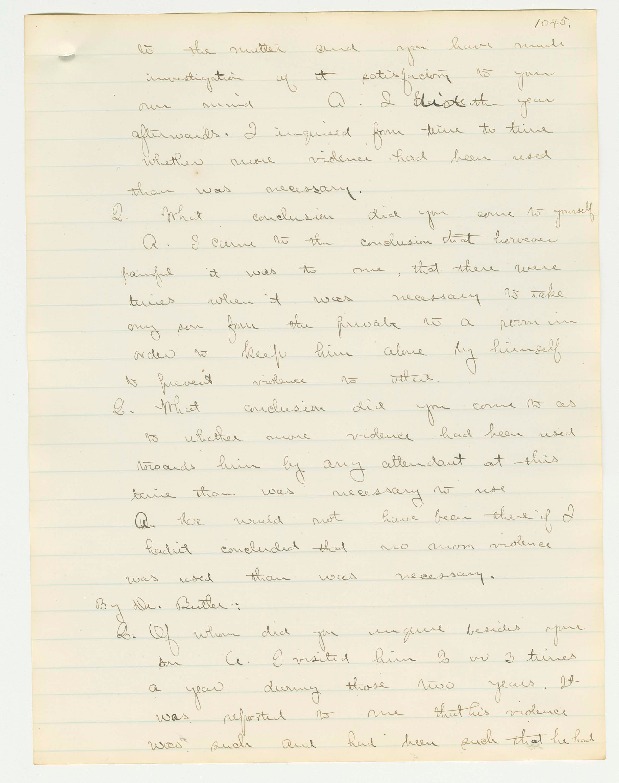 1045.
to the matter and you have made
investigation of it satisfactory to your
own mind A. I did the year
afterwards. I inquired from time to time
whether more violence had been used
than was necessary.
Q. What conclusion did you come to yourself
A. I came to the conclusion that however
painful it was to me, that there were
times when it was necessary to take
my son from the private to a room in
order to keep him alone by himself
to prevent violence to others.
Q. What conclusion did you come to as
to whether more violence had been used
towards him by any attendant at this
time than was necessary to use
A. He would not have been there if I
hadn't concluded that no more violence
was used than was necessary.
By Dr. Butler:
Q. Of whom did you inquire besides your
son A. I visited him 2 or 3 times
a year during those two years. It
was reported to me that his violence
was such and had been such that he had